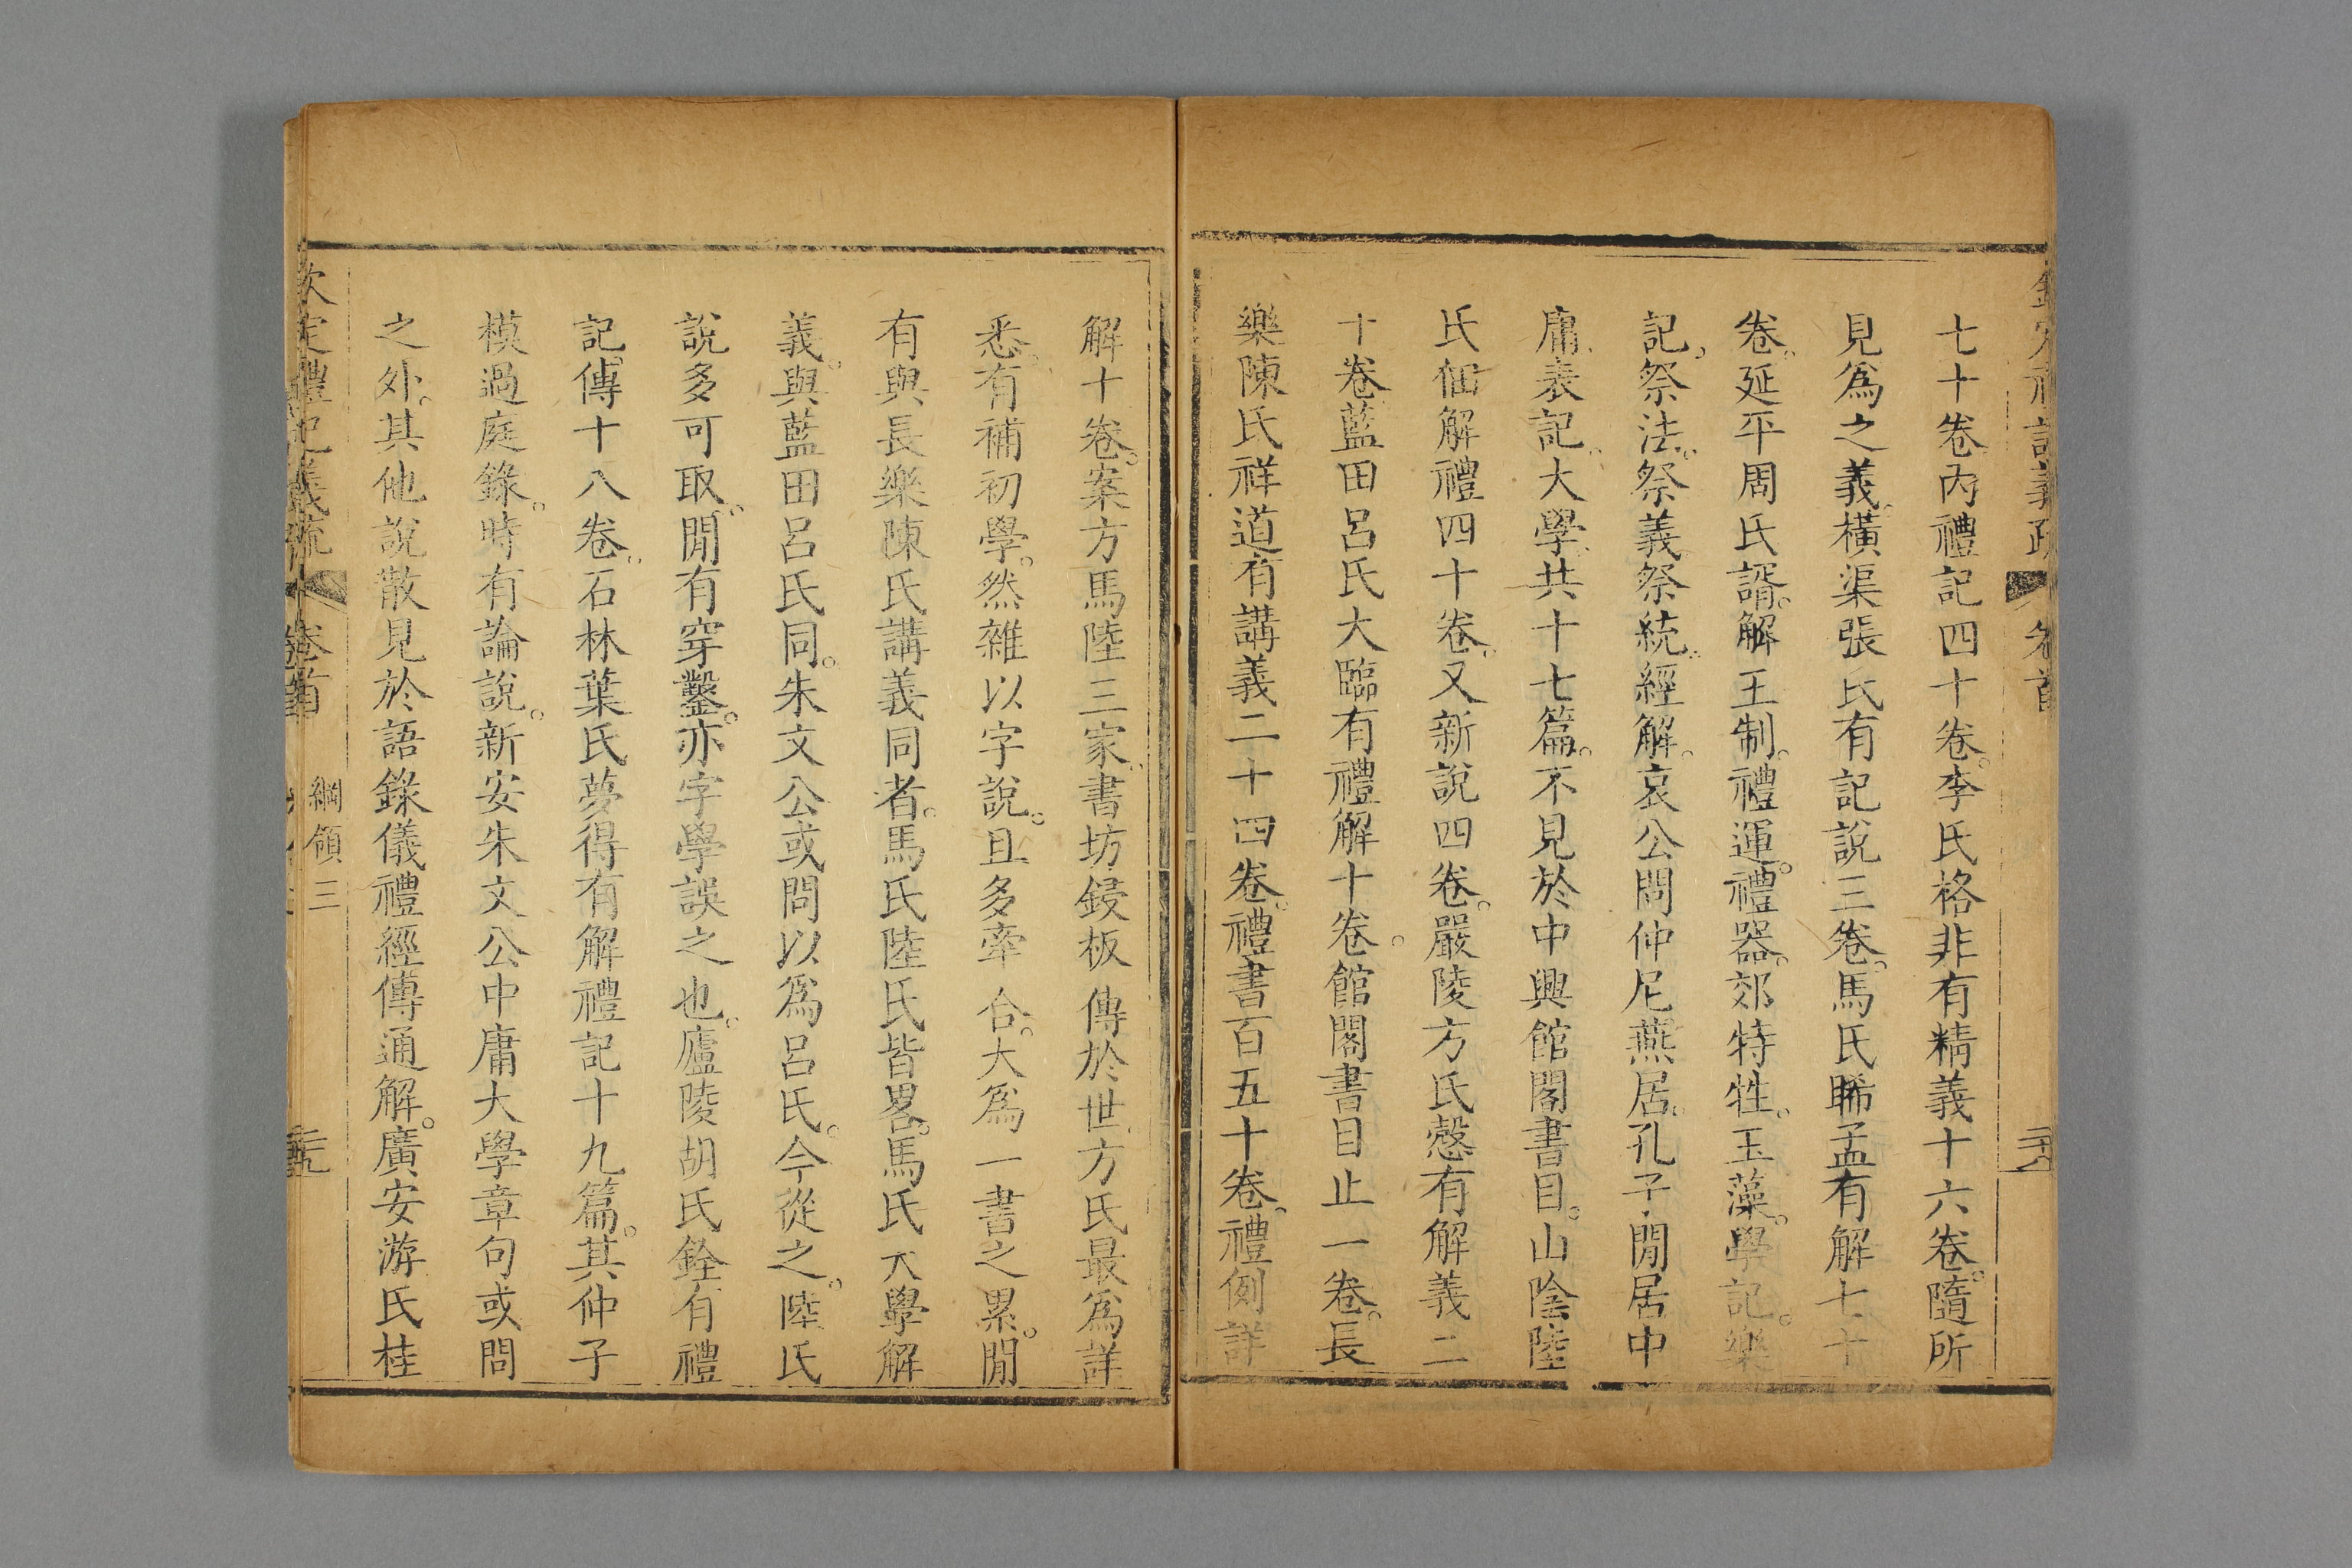 七十卷內禮記四十卷。李氏格非有精義十六卷。隨所
見爲之義。橫渠張氏有記說三卷。馬氏睎孟有解七十
卷。延平周氏諝。解王制。禮運。禮器。郊特牲。玉藻。學記。樂
記。祭法。祭義祭統。經解。哀公問仲尼燕居。孔子閒居中
庸表記。大學共十七篇。不見於中興館閣書目。山陰陸
氏佃解禮四十卷。又新說四卷。嚴陵方氏慤有解義二
十卷藍田呂氏大臨有禮解十卷。館閣書目止一卷。長
樂陳氏祥道有講義二十四卷。禮書百五十卷。禮例詳
解十卷。案方馬陸三家。書坊鋟板傳於世。方氏最爲詳
悉。有補初學。然雜以字說。且多牽合。大爲一書之累。閒
有與長樂陳氏講義同者。馬氏陸氏皆畧。馬氏大學解
義。與藍田呂氏同。朱文公或問以爲呂氏。今從之。陸氏
說多可取。閒有穿鑿。亦字學誤之也。廬陵胡氏銓有禮
記傳十八卷。石林葉氏夢得有解禮記十九篇。其仲子
模過庭錄。時有論說。新安朱文公中庸大學章句或問
之外。其他說散見於語錄儀禮經傳通解。廣安游氏桂
欽定禮記義疏 卷首 綱領三 二十九